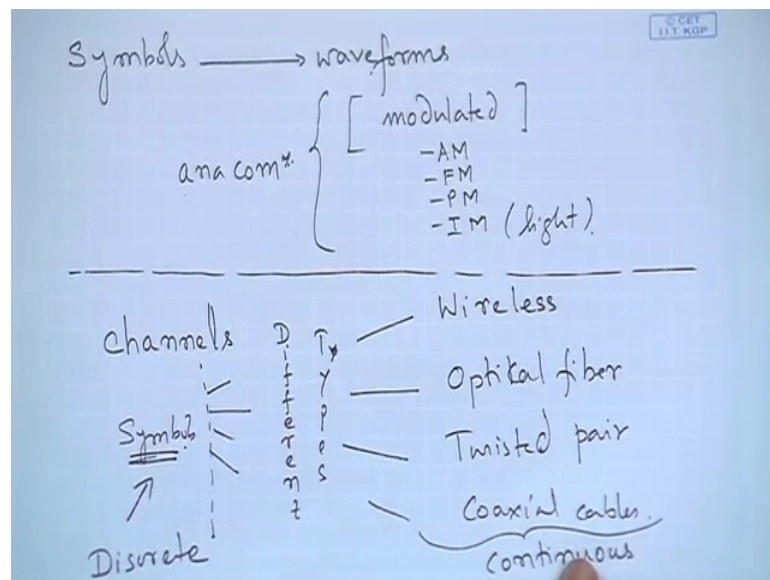 © CET
I.I.T. KGP
Symbols → waveforms
[ modulated ]
anacom
- AM
- FM
- PM
- IM (light).
Channels
Different
Types
Wireless
Optikal fiber
Twisted pair
Coaxial cables.
Symbols
Discrete
continuous